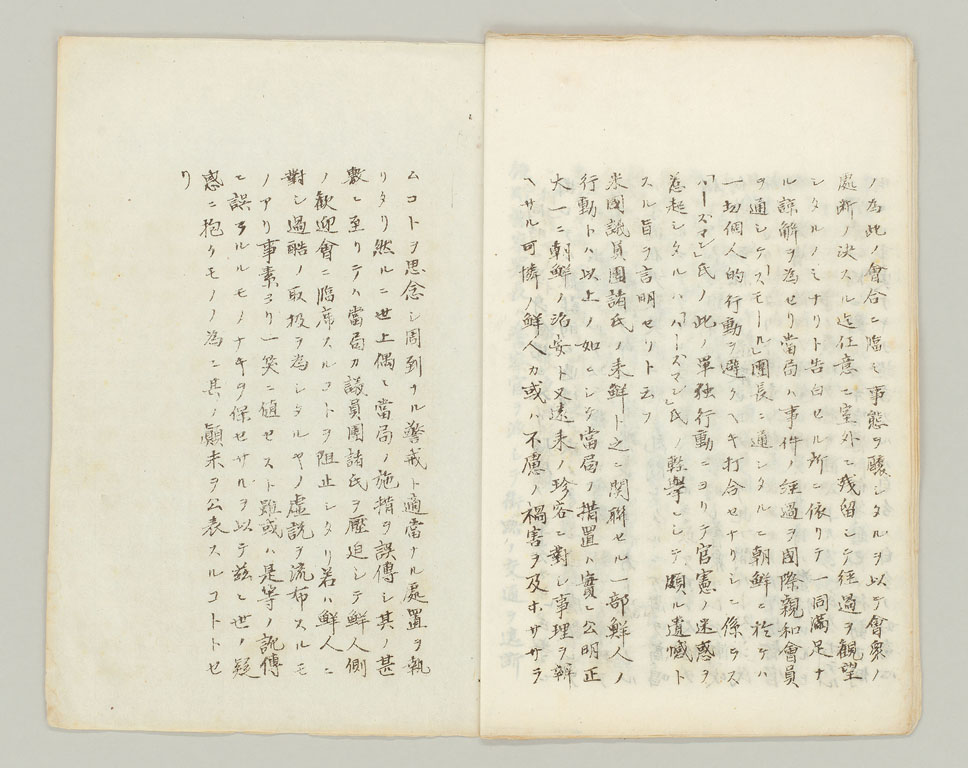 ノ為此ノ會合ニ臨ミ事態ヲ釀シタルヲ以テ會衆ノ
處断ノ決スル迄任意ニ室外ニ残留シテ經過ヲ觀望
シタルノミナリト告白セル所ニ依リテ一同滿足ナ
ル諒解ヲ為セリ當局ハ事件ノ經過ヲ國際親和會員
ヲ通シケスモール」團長ニ通シタルニ朝鮮ニ於ケハ
一切個人的行動ヲ避クヘキ打合セナリシニ係ラス
「ハースマン」氏ノ此ノ單独行動ニヨリテ官憲ノ迷惑ヲ
惹起シタルハ「ハースマン」氏ノ輕擧ニシテ頗ル遺憾ト
スル旨ヲ言明セリト云フ
米國議員團諸氏ノ来鮮ト之ニ関聯セル一部鮮人ノ
行動トハ以上ノ如ニシテ當局ノ措置ハ實ニ公明正
大一ニ朝鮮ノ治安ト又遠来ノ珍客ニ對シ事理ヲ辨
ヘサル可憐ノ鮮人カ或ハ不慮ノ禍害ヲ及ホササラ
ムコトヲ思念シ周到ナル警戒ト適當ナル處置ヲ執
リタリ然ルニ世上偶々當局ノ施措ヲ誤傳シ其ノ甚
敷ニ至リテハ當局カ議員團諸氏ヲ壓迫シテ鮮人側
ノ歡迎會ニ臨席スルコトヲ阻止シタリ若ハ鮮人ニ
對シ過酷ノ取扱ヲ為シタルヤノ虚説ヲ流布スルモ
ノアリ事素ヨリ一笑ニ値セスト雖或ハ是等ノ訛傳
ニ誤ラルルモノナキヲ保セサルヲ以テ茲ニ世ノ疑
惑ニ抱クモノノ為ニ其ノ顚末ヲ公表スルコトトセ
リ